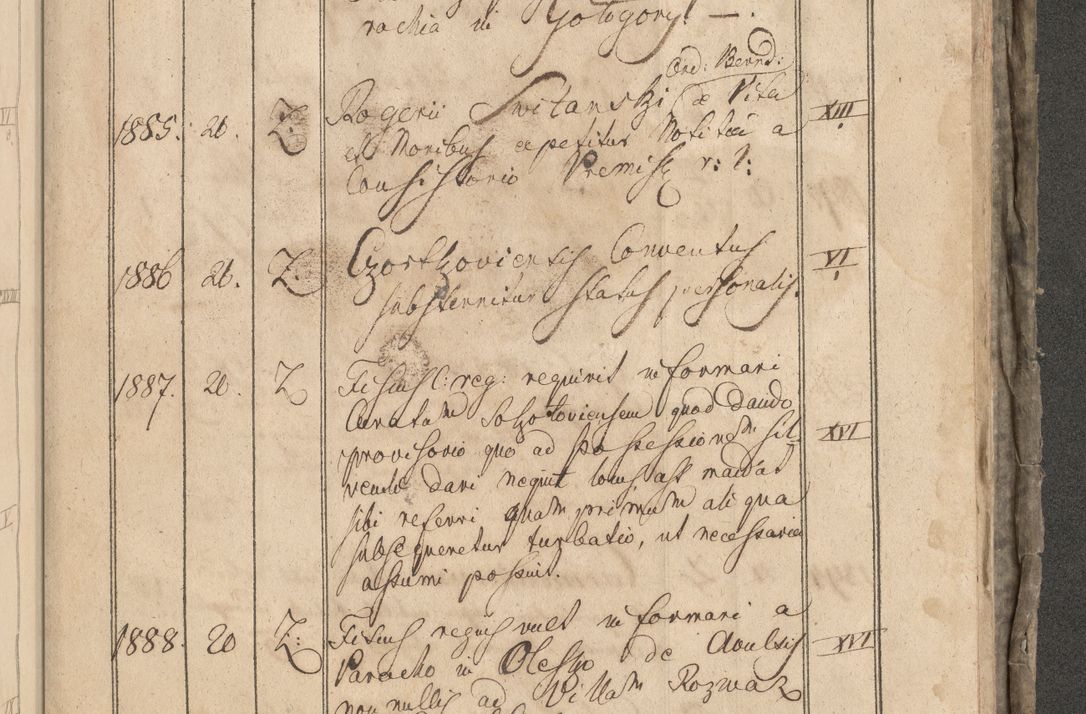 rachia in Gologory. —.
Ord: Bernd:
1885. 20. Z. Rogerii Switanski de Vita XIII
et Moribus expetitur Notitia a
Consistorio Premisl: r: l:
1886 20. Z. Czortkoviensis Conventus VI
substernitur status personalis.
1887. 20. Z Fiscus C: reg: requirit informari
Curatam Sokołoviensem quod dando
provisorio quo ad possessionem sil- XVI
vendi dari nequit
sibi referri quam primum ali qua
subsequeretur turbatio, ut necessaria
assumi possint.
1888. 20 Z: Fiscus regius vult informari a
Paracho in Olesko de Avulsis XVI
non nullis ad Villam Rozwaz